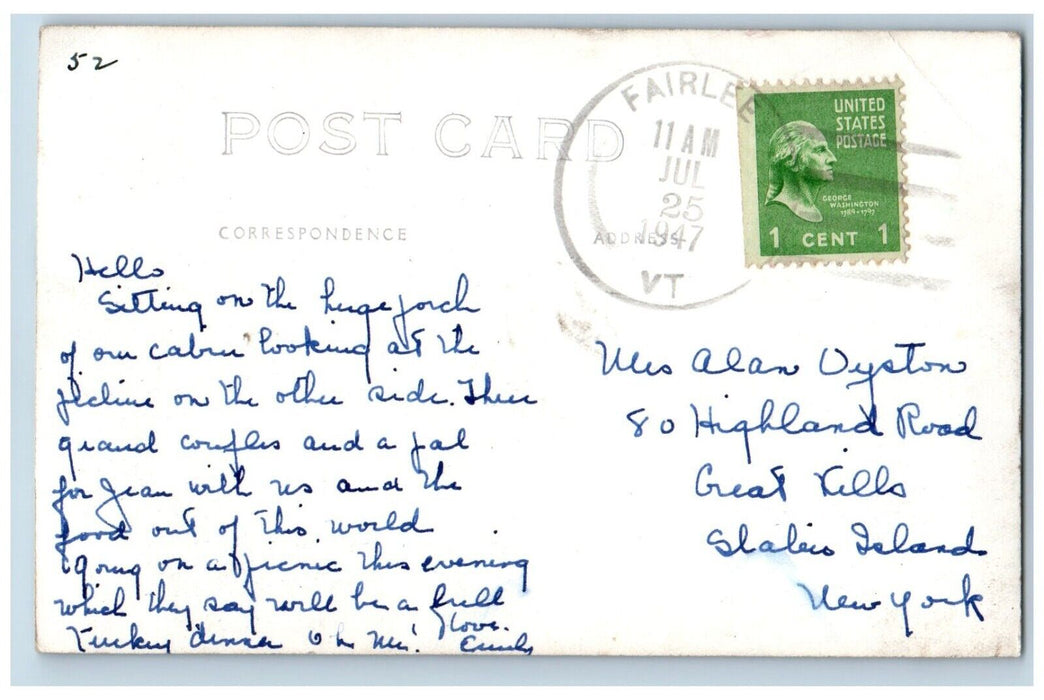 52
POST CARD
FAIRLEE
11 AM
JUL
25
1947
VT
UNITED
STATES
POSTAGE
GEORGE
WASHINGTON
1789-1797
1 CENT 1
CORRESPONDENCE
ADDRESS
Hello
Sitting on the huge porch
of our cabin looking at the
picture on the other side. Three
grand couples and a pal
for Jean with us and the
food out of this world
going on a picnic this evening
which they say will be a full
Turkey dinner Oh me! Love.
Emily
Mrs Alan Oyston
80 Highland Road
Great Kills
Staten Island
New York